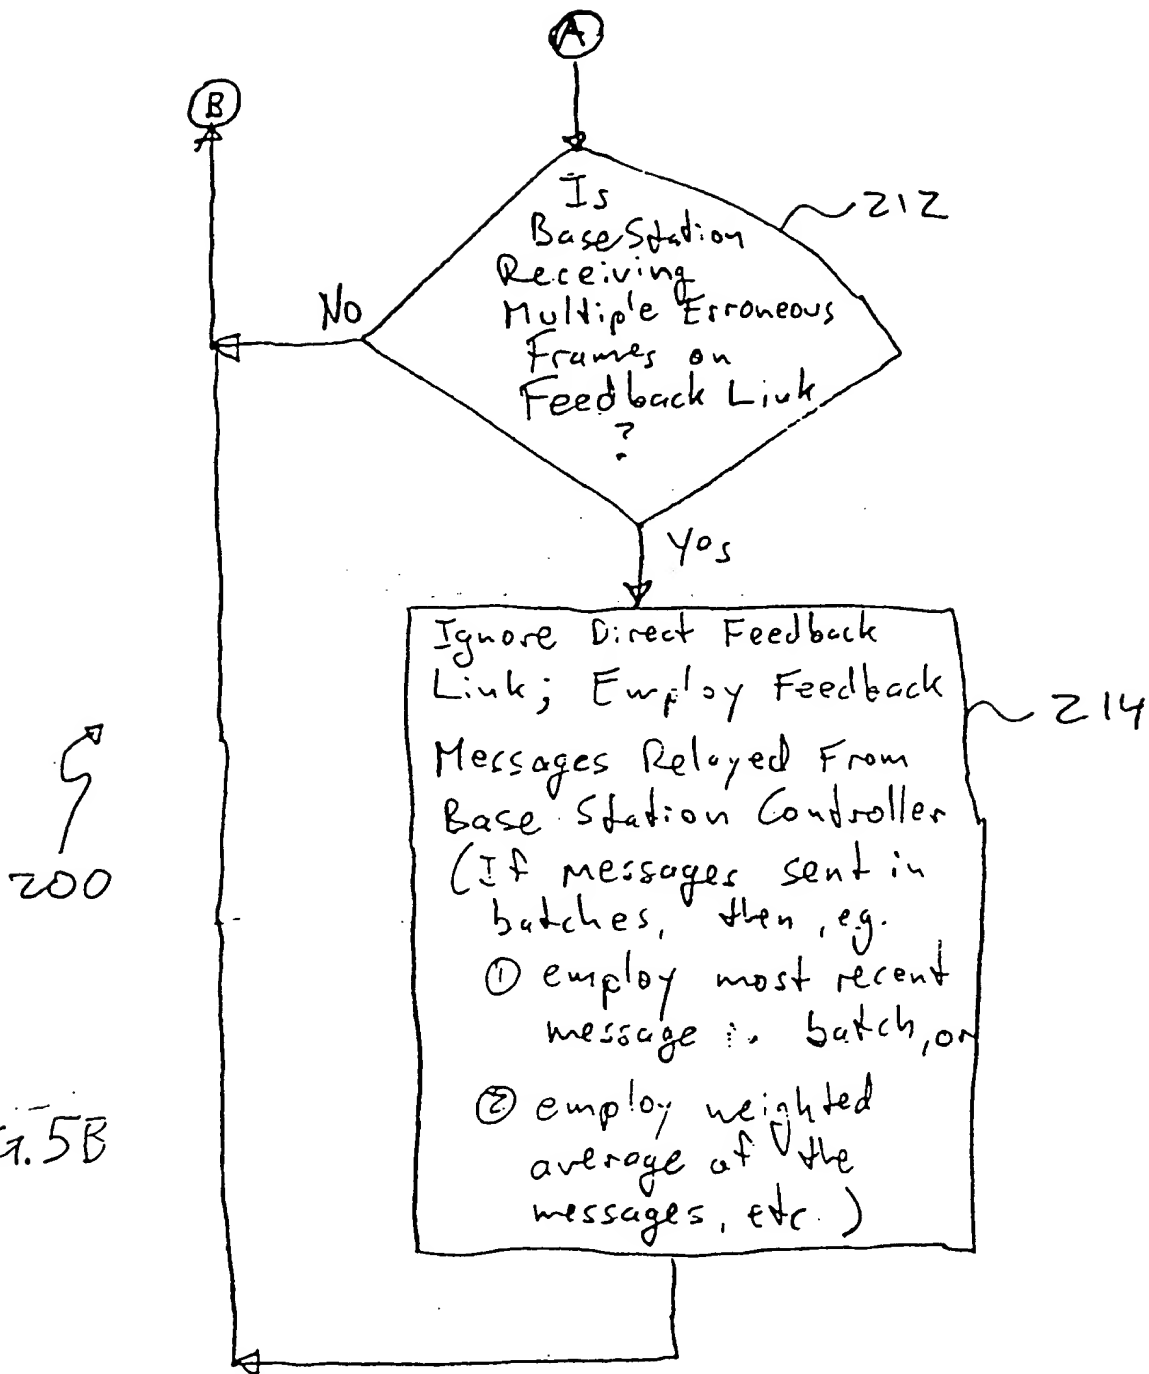 A
B
Is
Base Station
Receiving
Multiple Erroneous
Frames on
Feedback Link
?
212
No
Yes
Ignore Direct Feedback
Link; Employ Feedback
Messages Relayed From
Base Station Controller
(If messages sent in
batches, then, e.g.
① employ most recent
message in batch, or
② employ weighted
average of the
messages, etc.)
214
200
G. 5B